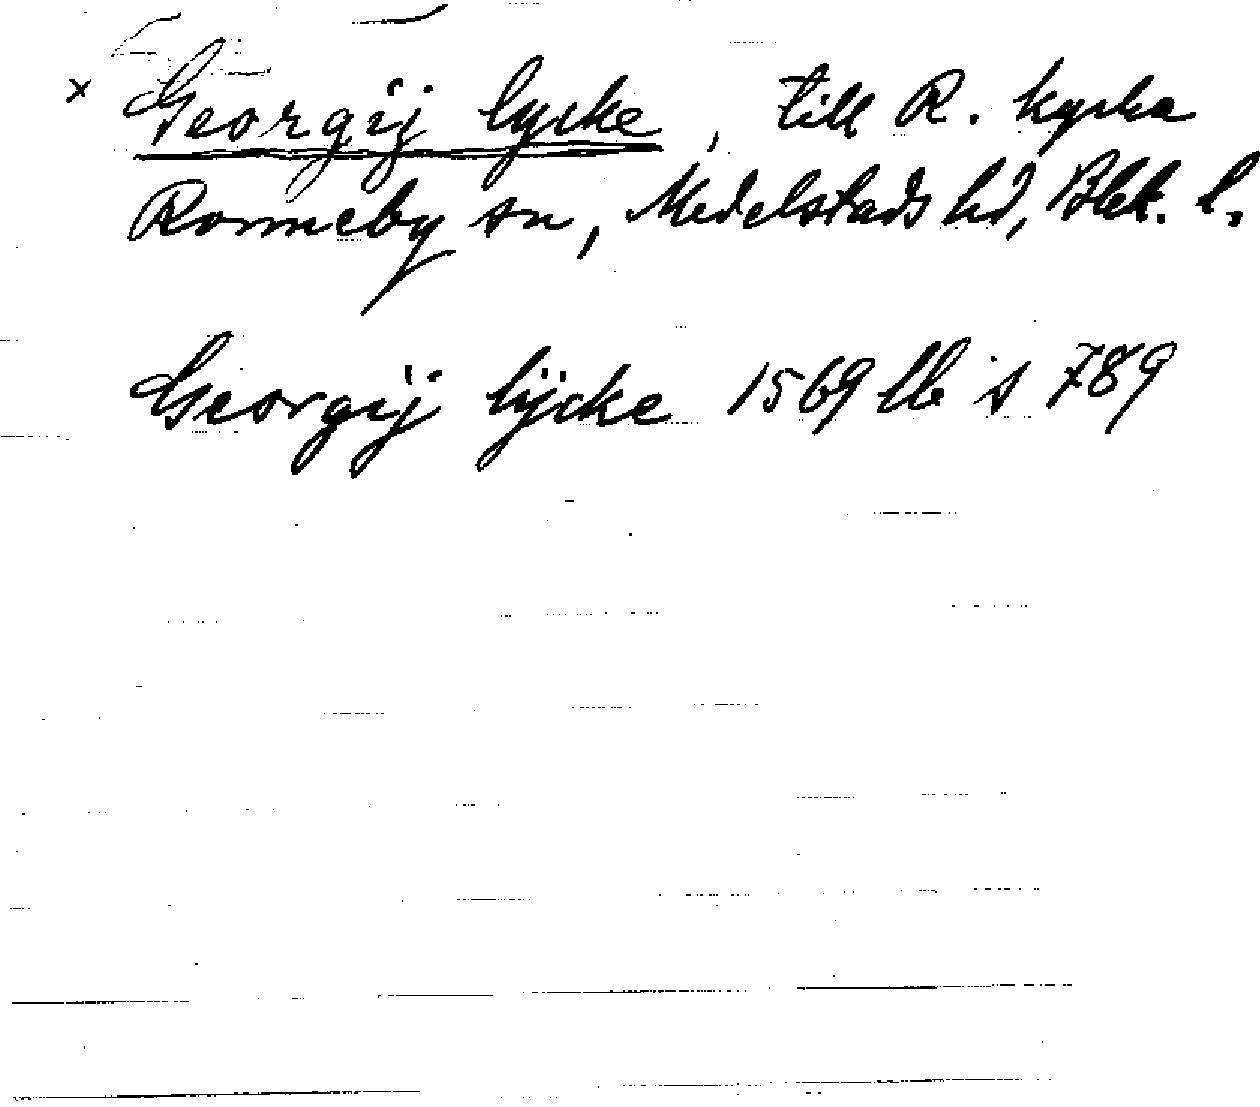 × Georgij lycke, till R. kyrka
Ronneby sn, Medelstads hd, Blek. l.
Georgij lijcke 1569 lb s 789